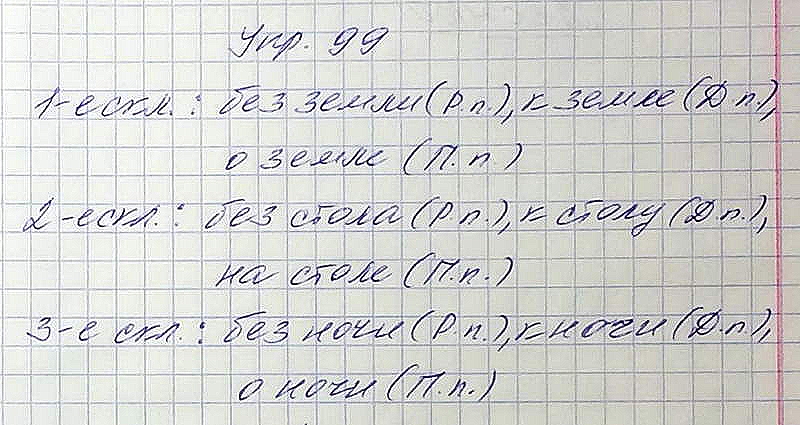 Укр. 99
1-е скл.: без земли (Р.п.), к земле (Д.п.),
о земле (П.п.)
2-е скл.: без стола (Р.п.), к столу (Д.п.),
на столе (П.п.)
3-е скл.: без ночи (Р.п.), к ночи (Д.п.),
о ночи (П.п.)